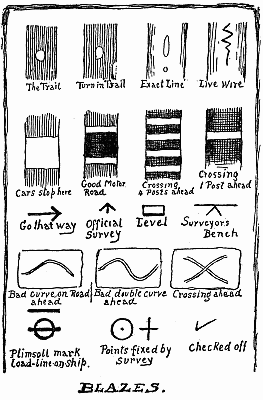 The Trail
Turn in Trail
Exact Line
Live Wire
Cars stop here
Good Motor
Road
Crossing
4 Posts ahead
Crossing
1 Post ahead
Go that way
Official
Survey
Level
Surveyors
Bench
Bad curve on Road
ahead
Bad double curve
ahead
Crossing ahead
Plimsoll mark
Load-line on ship.
Points fixed by
survey
Checked off
BLAZES.